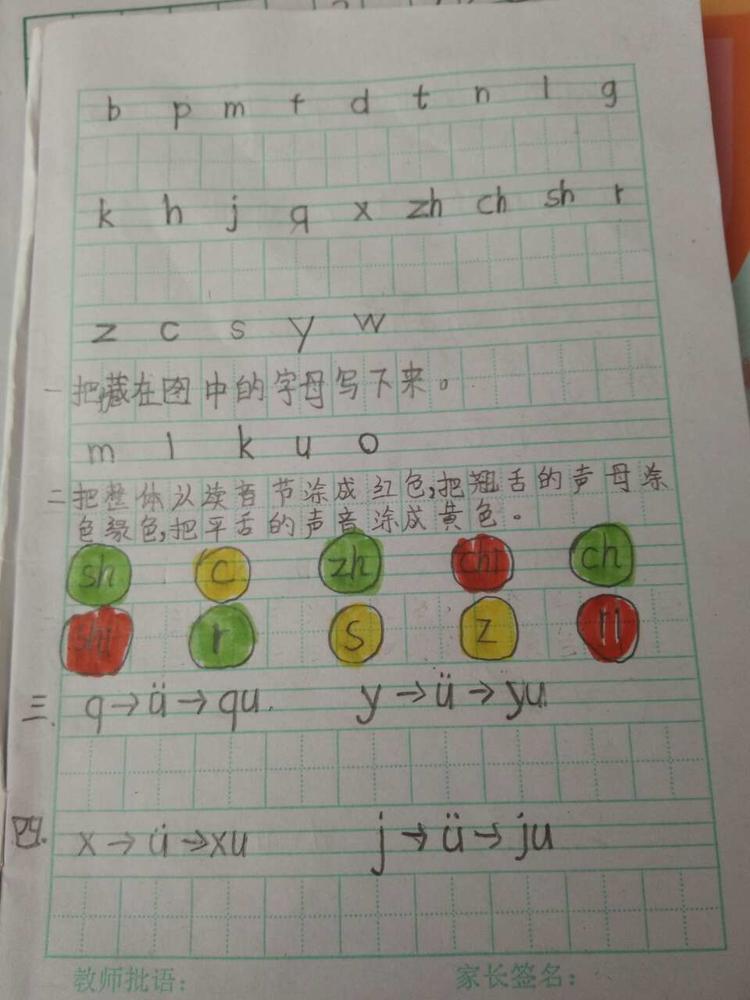 b p m f d t n l g
k h j q x zh ch sh r
z c s y w
一 把藏在图中的字母写下来。
m l k u o
二 把整体认读音节涂成红色,把翘舌的声母涂
色绿色,把平舌的声音涂成黄色。
sh c zh chi ch
shi r s z ri
三、 q→ü→qu y→ü→yu
四. x→ü→xu j→ü→ju
教师批语: 家长签名: